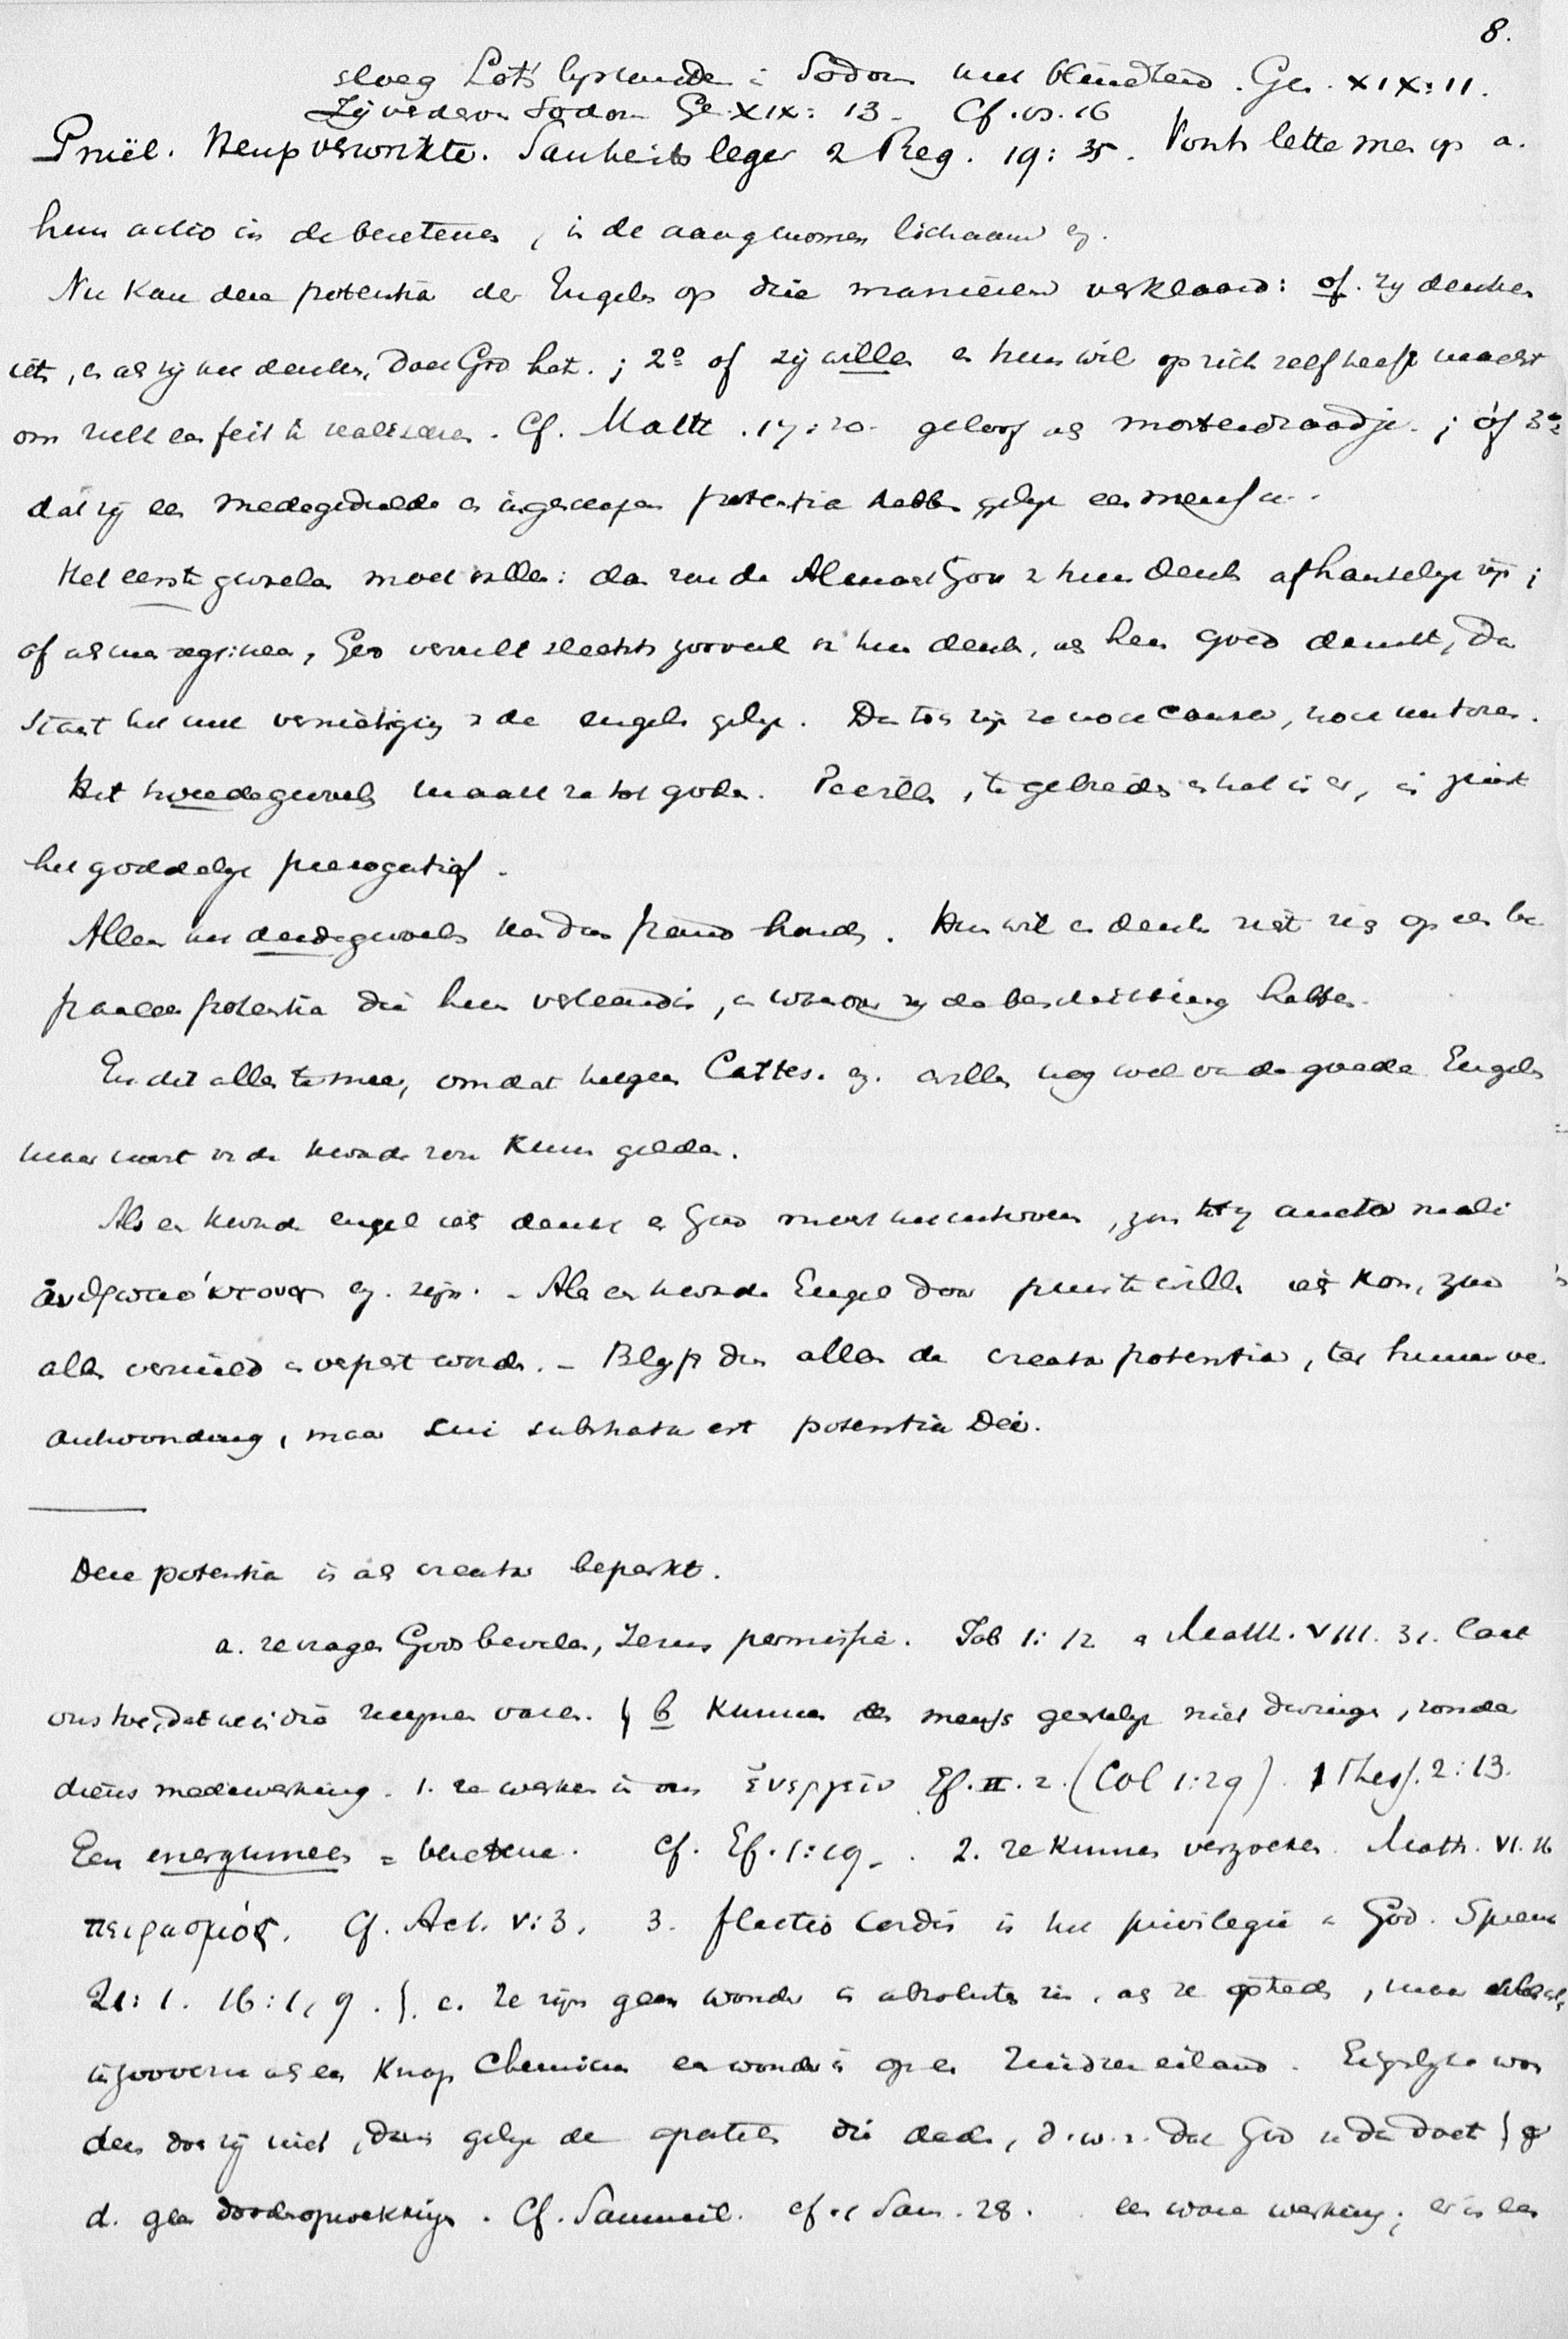 8.
sloeg Lots in Sodom met blindheid. Gen. XIX: 11.
Zij verderven Sodom Ge. XIX: 13 - Cf. vs. 16
Pniël. Heup verwrikte. Sanheribs leger 2 Reg. 19: 35. Voorts lette men op a.
hun actio in de bezetenen, in de aangenomen lichaam ez.
Nu kan deze potentia der Engelen op drie manieren verklaard: of. zij denken
iets, en als zij het denken, doet God het. ; 2º of zij willen en hun wil op zich zelf heeft macht
om zulk een feit te realiseeren. Cf. Matth. 17:20. geloof als mosterdzaadje. ; óf 3º
dat zij een medegedeelde en ingeschapen potentia hebben gelijk een mensch.
Het eerste gevoelen moet vallen: dan zou de Almacht Gods v hun denken afhankelijk zijn ;
of als men zegt: neen, God vervult slechts zooveel v. hun denken, als hem goed dunkt, dan
staat het met vernietiging v de engelen gelijk. Dan toch zijn ze noch causae, noch auctores.
Het tweede gevoelen maakt ze tot goden. Te willen, te gebieden en het is er, is juist
het goddelijk prerogatief.
Alleen het derde gevoelen kan dus stand houden. Hun wil en denken richt zich op een be
paalde potentia die hun verleend is, en waarover zij de beschikking hebben.
En dit alles te meer, omdat hetgeen Cartes. ez. willen nog wel van de goede Engelen
maar nooit v de kwade zou kunnen gelden.
Als een kwade engel iets denkt en God moest het uitvoeren, zou hij auctor mali
ἀνθρωποκτονος ez. zijn. - Als een kwade Engel door puur te willen iets kon, zou
alles vernield en verpest worden. - Blijft dus alleen de creata potentia, ter hunner ver
antwoording, maar cui substrata est potentia Dei.
Deze potentia is als creata beperkt.
a. ze vragen Gods bevelen, Jezus permissie. Job 1: 12 en Matth. VIII. 31. laat
ons toe, dat we in die zwijnen varen. } b kunnen den mensch geestelijk niet dwingen, zonder
diens medewerking. 1. ze werken in ons ἐνεργεῖν Ef. II. 2. (Col 1:29). 1 Thess. 2:13.
Een energumeen = bezetene. Cf. Ef. 1:19 -. 2. ze kunnen verzoeken. Matth. VI. 16
πειρασμός. Cf. Act. V:3. 3. flectio cordis is het privilegie v God. Spreuk
21: 1. 16: 1, 9. }. c. Ze zijn geen wonder in absoluten zin, als ze optreden, maar
in zooverre als een knap Chemicus een wonder is op een Zuidzee eiland. Eigenlijke won
deren doen zij niet, dan gelijk de apostelen die deden, d.w.z. dat God ze dan doet }
d. geen doodenopwekking. Cf. Samuël. cf. 1 Sam. 28. een ware werking; er is een